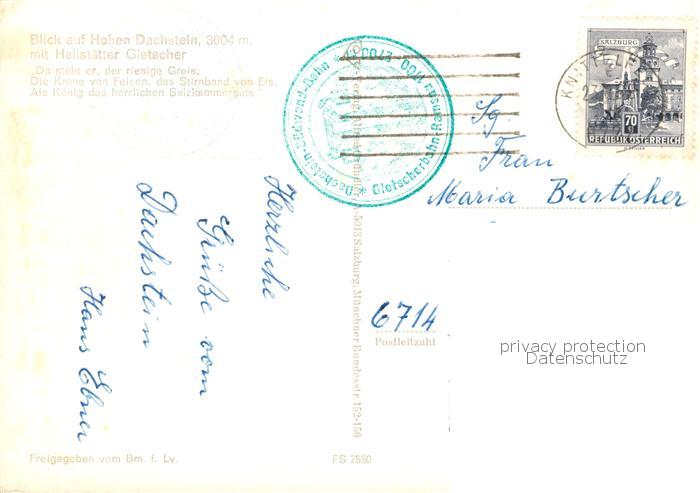 Blick auf Hohen Dachstein, 3004 m.
mit Hallstätter Gletscher
„Da steht er, der riesige Greis,
Die Krone von Felsen, das Stirnband von Eis,
Als König des herrlichen Salzkammerguts."
Herzliche
Grüße vom
Dachstein
Hans Ebner
Freigegeben vom Bm. f. Lv.
FS 7550
Dachstein-Südwand-Bahn
Gletscherbahn-Ramsau
-5013 Salzburg, Münchner Bundesstr. 152-156
SALZBURG
70
REPUBLIK ÖSTERREICH
Sg.
Frau
Maria Burtscher
6714
Postleitzahl
privacy protection
Datenschutz